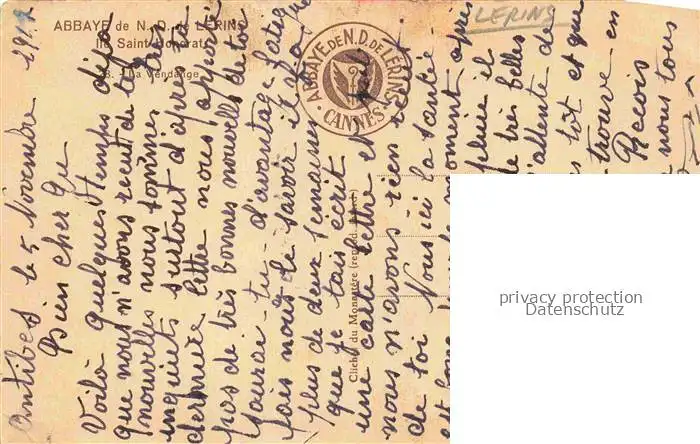 ABBAYE de N. D. de LERINS
Ile Saint-Honorat
8. - La Vendange
LERINS
ABBAYE DE N. D. DE LERINS
CANNES
Cliché du Monastère (reprod. interd.)
Antibes le 5 Novembre 191
Bien cher
Voilà quelques temps déja
que nous n'avons recut de tes
nouvelles nous sommes très
inquiets surtout d'après ta
dernière lettre nous apporté
pas de très bonnes nouvelles de toi
Saurai-tu d'avantage fatigué
fais nous le savoir il y a
plus de deux semaines
que je tais écrit
une carte lettre et
nous n'avons rien recut
de toi Nous ici la santé
est bonne moment après
pluie il
de très belles
l'attente de
tôt et que
trouve en
Recois
nous tous
privacy protection
Datenschutz